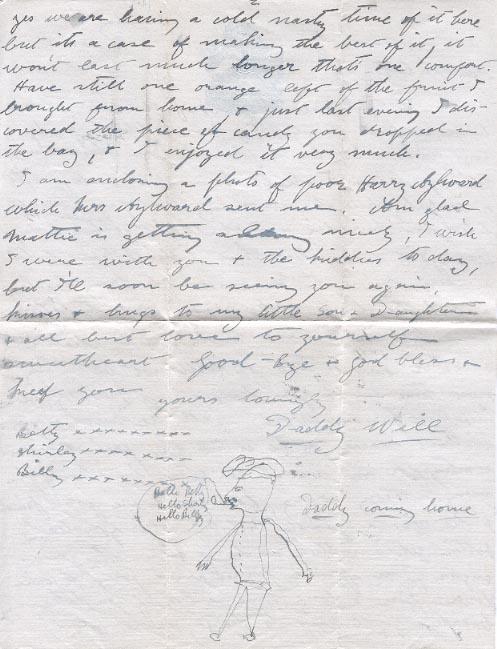 2
yes we are having a cold nasty time of it here
but its a case of making the best of it, it
won't last much longer thats one comfort.
Have still one orange left of the fruit I
brought from home, & just last evening I dis
covered the piece of candy you dropped in
the bag, & I enjoyed it very much.
I am enclosing a photo of poor Harry Aylward
which Mrs Aylward sent me. Am glad
Mattie is getting along nicely, I wish
I were with you & the kiddies to day,
but I'll soon be seeing you again,
kisses & hugs to my little Son & Daughters
& all best love to yourself
sweetheart Good-Bye & God bless &
keep you yours lovingly
Daddy Will
Betty xxxxxxxxx
Shirley xxxxxxxxx
Billy xxxxxxxxx
Hello Betty
Hello Shirley
Hello Billy
Daddy coming home